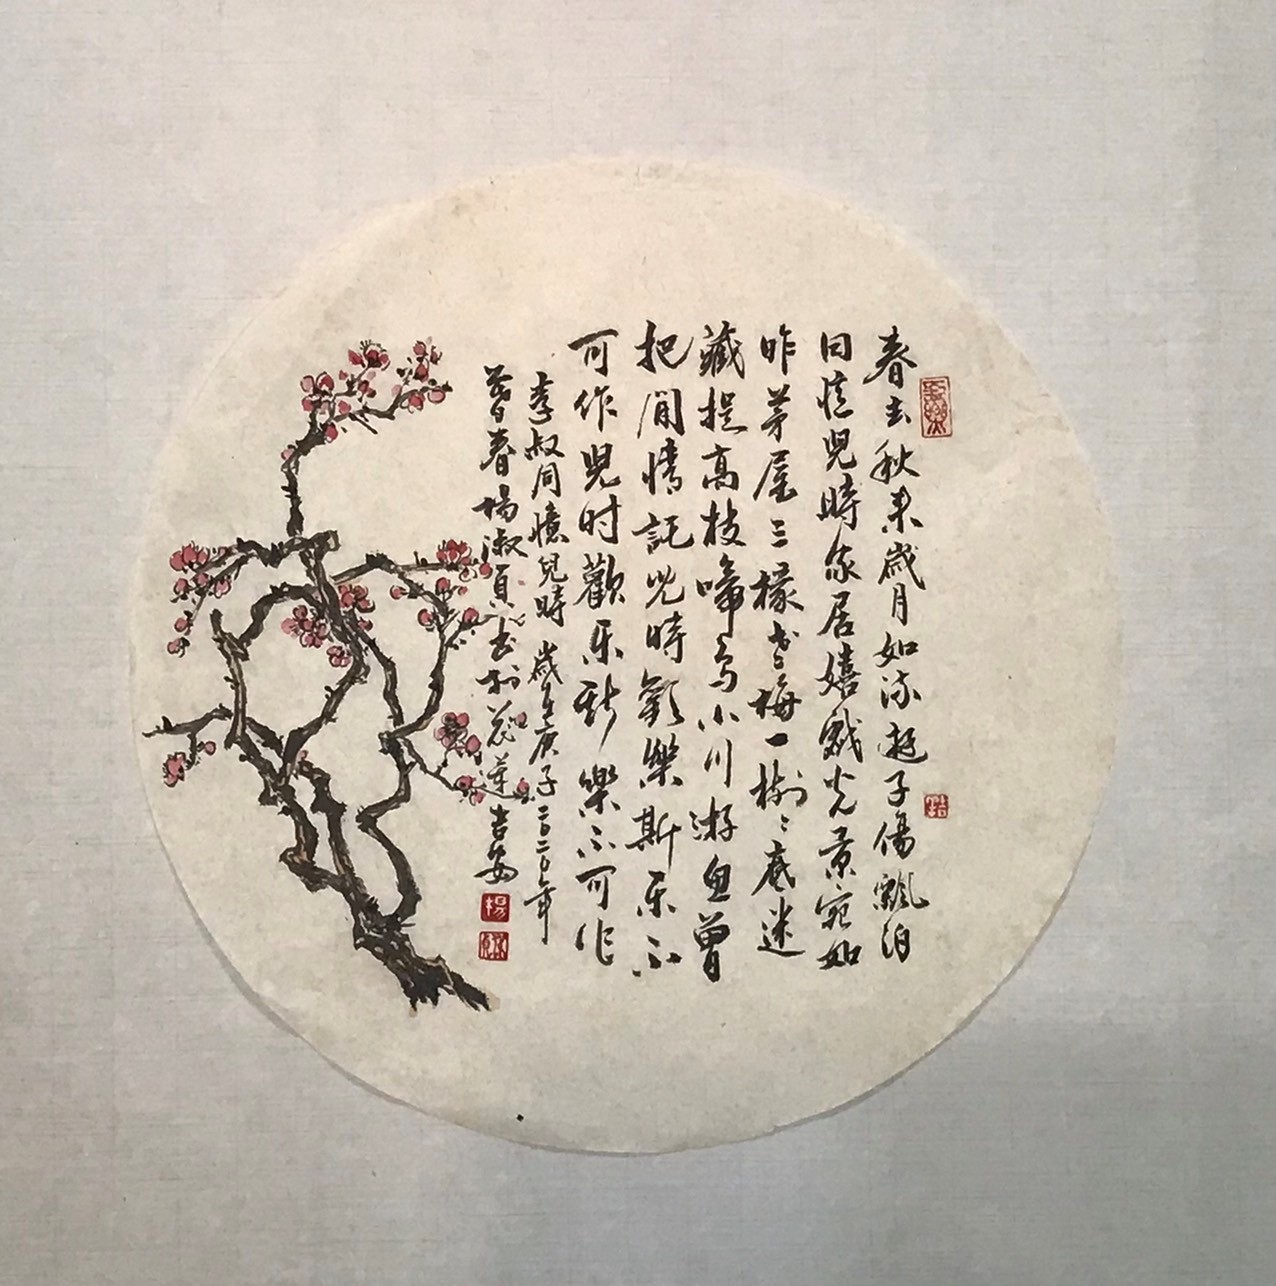 春去秋来歲月如流遊子傷飄泊
回憶兒時家居嬉戲光景宛如
昨茅屋三椽老梅一樹樹底迷
藏捉高枝啼鳥小川游魚曾
把閒情託兒時歡樂斯乐不
可作兒时歡乐斯樂不可作
李叔同憶兒時 歲在庚子二〇二〇年
暮春楊淑貞書於花蓮吉安
楊